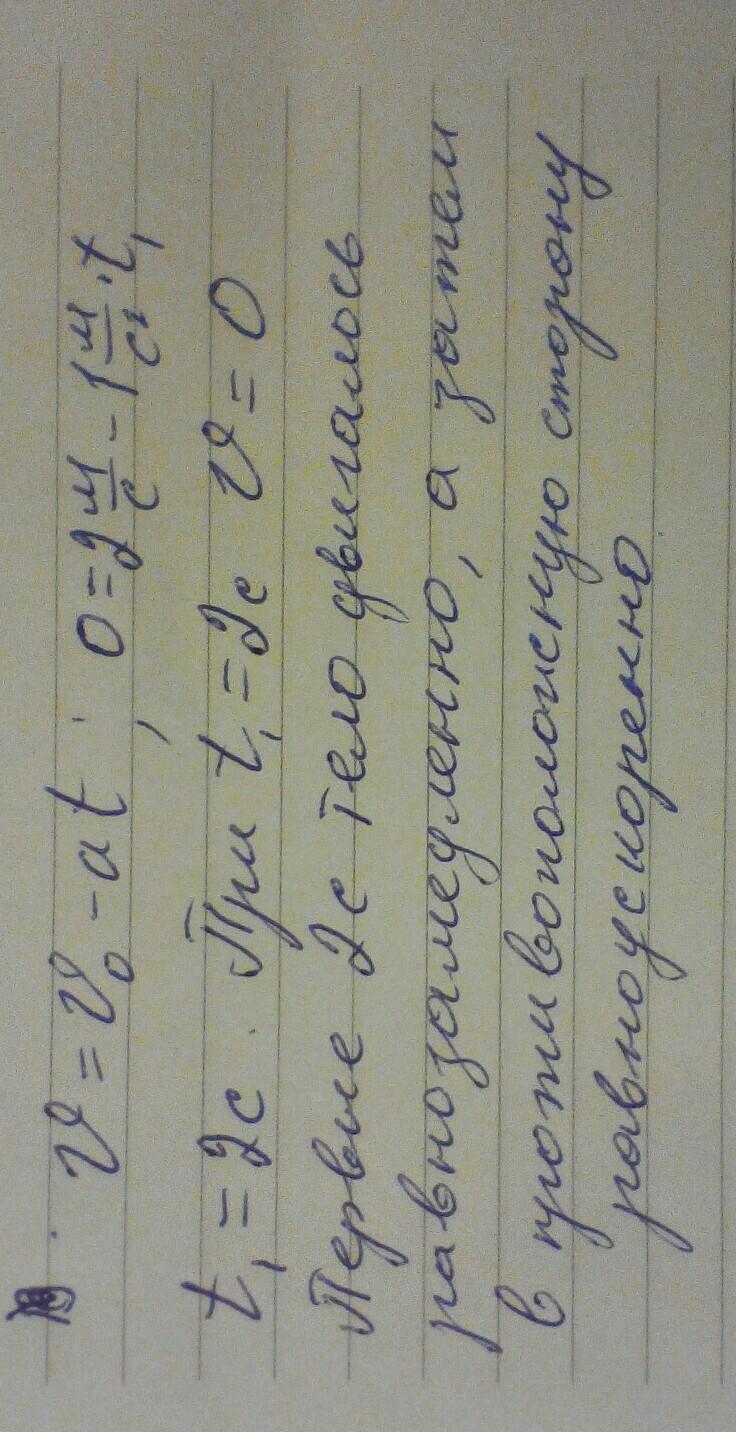 v = v₀ - at ; 0 = 2 м/с - 1 м/с² · t₁
t₁ = 2с . При t₁ = 2с v = 0
Первые 2с тело двигалось
равнозамедленно, а затем
в противоположную сторону
равноускоренно